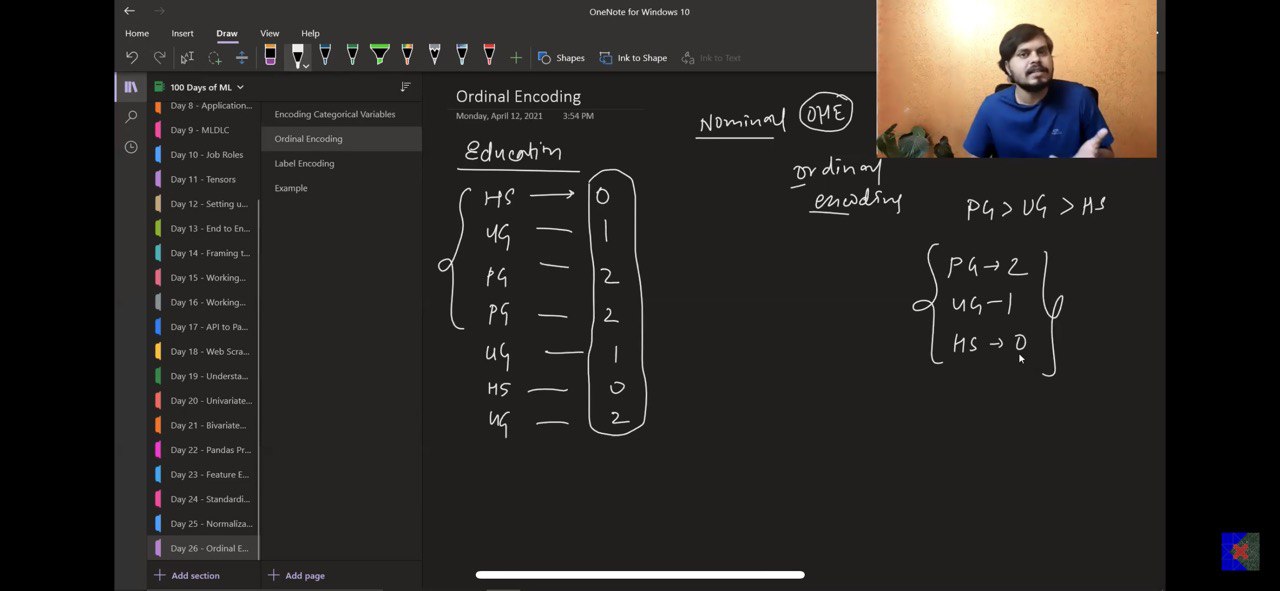 OneNote for Windows 10
Home Insert Draw View Help
Shapes Ink to Shape Ink to Text
100 Days of ML
Day 8 - Application...
Day 9 - MLDLC
Day 10 - Job Roles
Day 11 - Tensors
Day 12 - Setting u...
Day 13 - End to En...
Day 14 - Framing t...
Day 15 - Working...
Day 16 - Working...
Day 17 - API to Pa...
Day 18 - Web Scra...
Day 19 - Understa...
Day 20 - Univariate...
Day 21 - Bivariate...
Day 22 - Pandas Pr...
Day 23 - Feature E...
Day 24 - Standardi...
Day 25 - Normaliza...
Day 26 - Ordinal E...
+ Add section
Encoding Categorical Variables
Ordinal Encoding
Label Encoding
Example
+ Add page
Ordinal Encoding
Monday, April 12, 2021 3:54 PM
Education
HS → 0
UG — 1
PG — 2
PG — 2
UG — 1
HS — 0
UG — 2
Nominal OHE
ordinal
encoding
PG > UG > HS
PG → 2
UG - 1
HS → 0